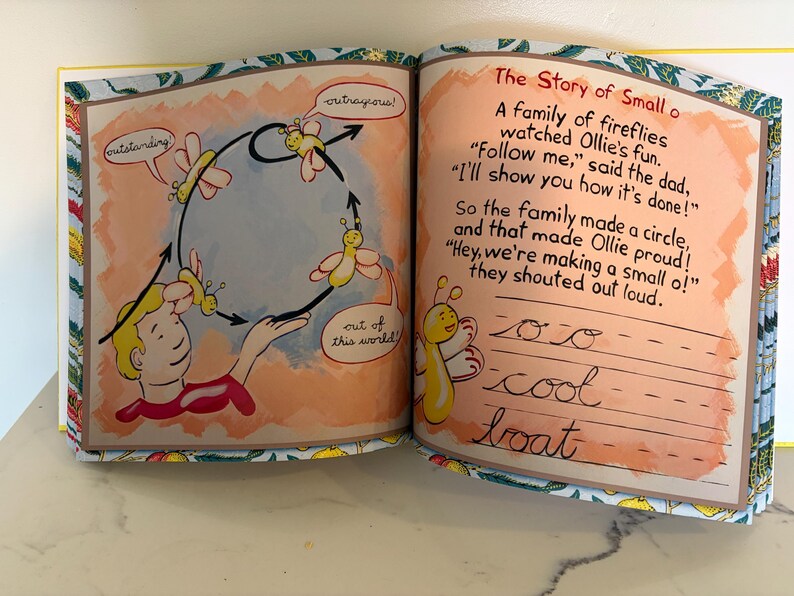 outstanding!
outrageous!
out of
this world!
The Story of Small o
A family of fireflies
watched Ollie's fun.
"Follow me," said the dad,
"I'll show you how it's done!"
So the family made a circle,
and that made Ollie proud!
"Hey, we're making a small o!"
they shouted out loud.
o o
cool
boat